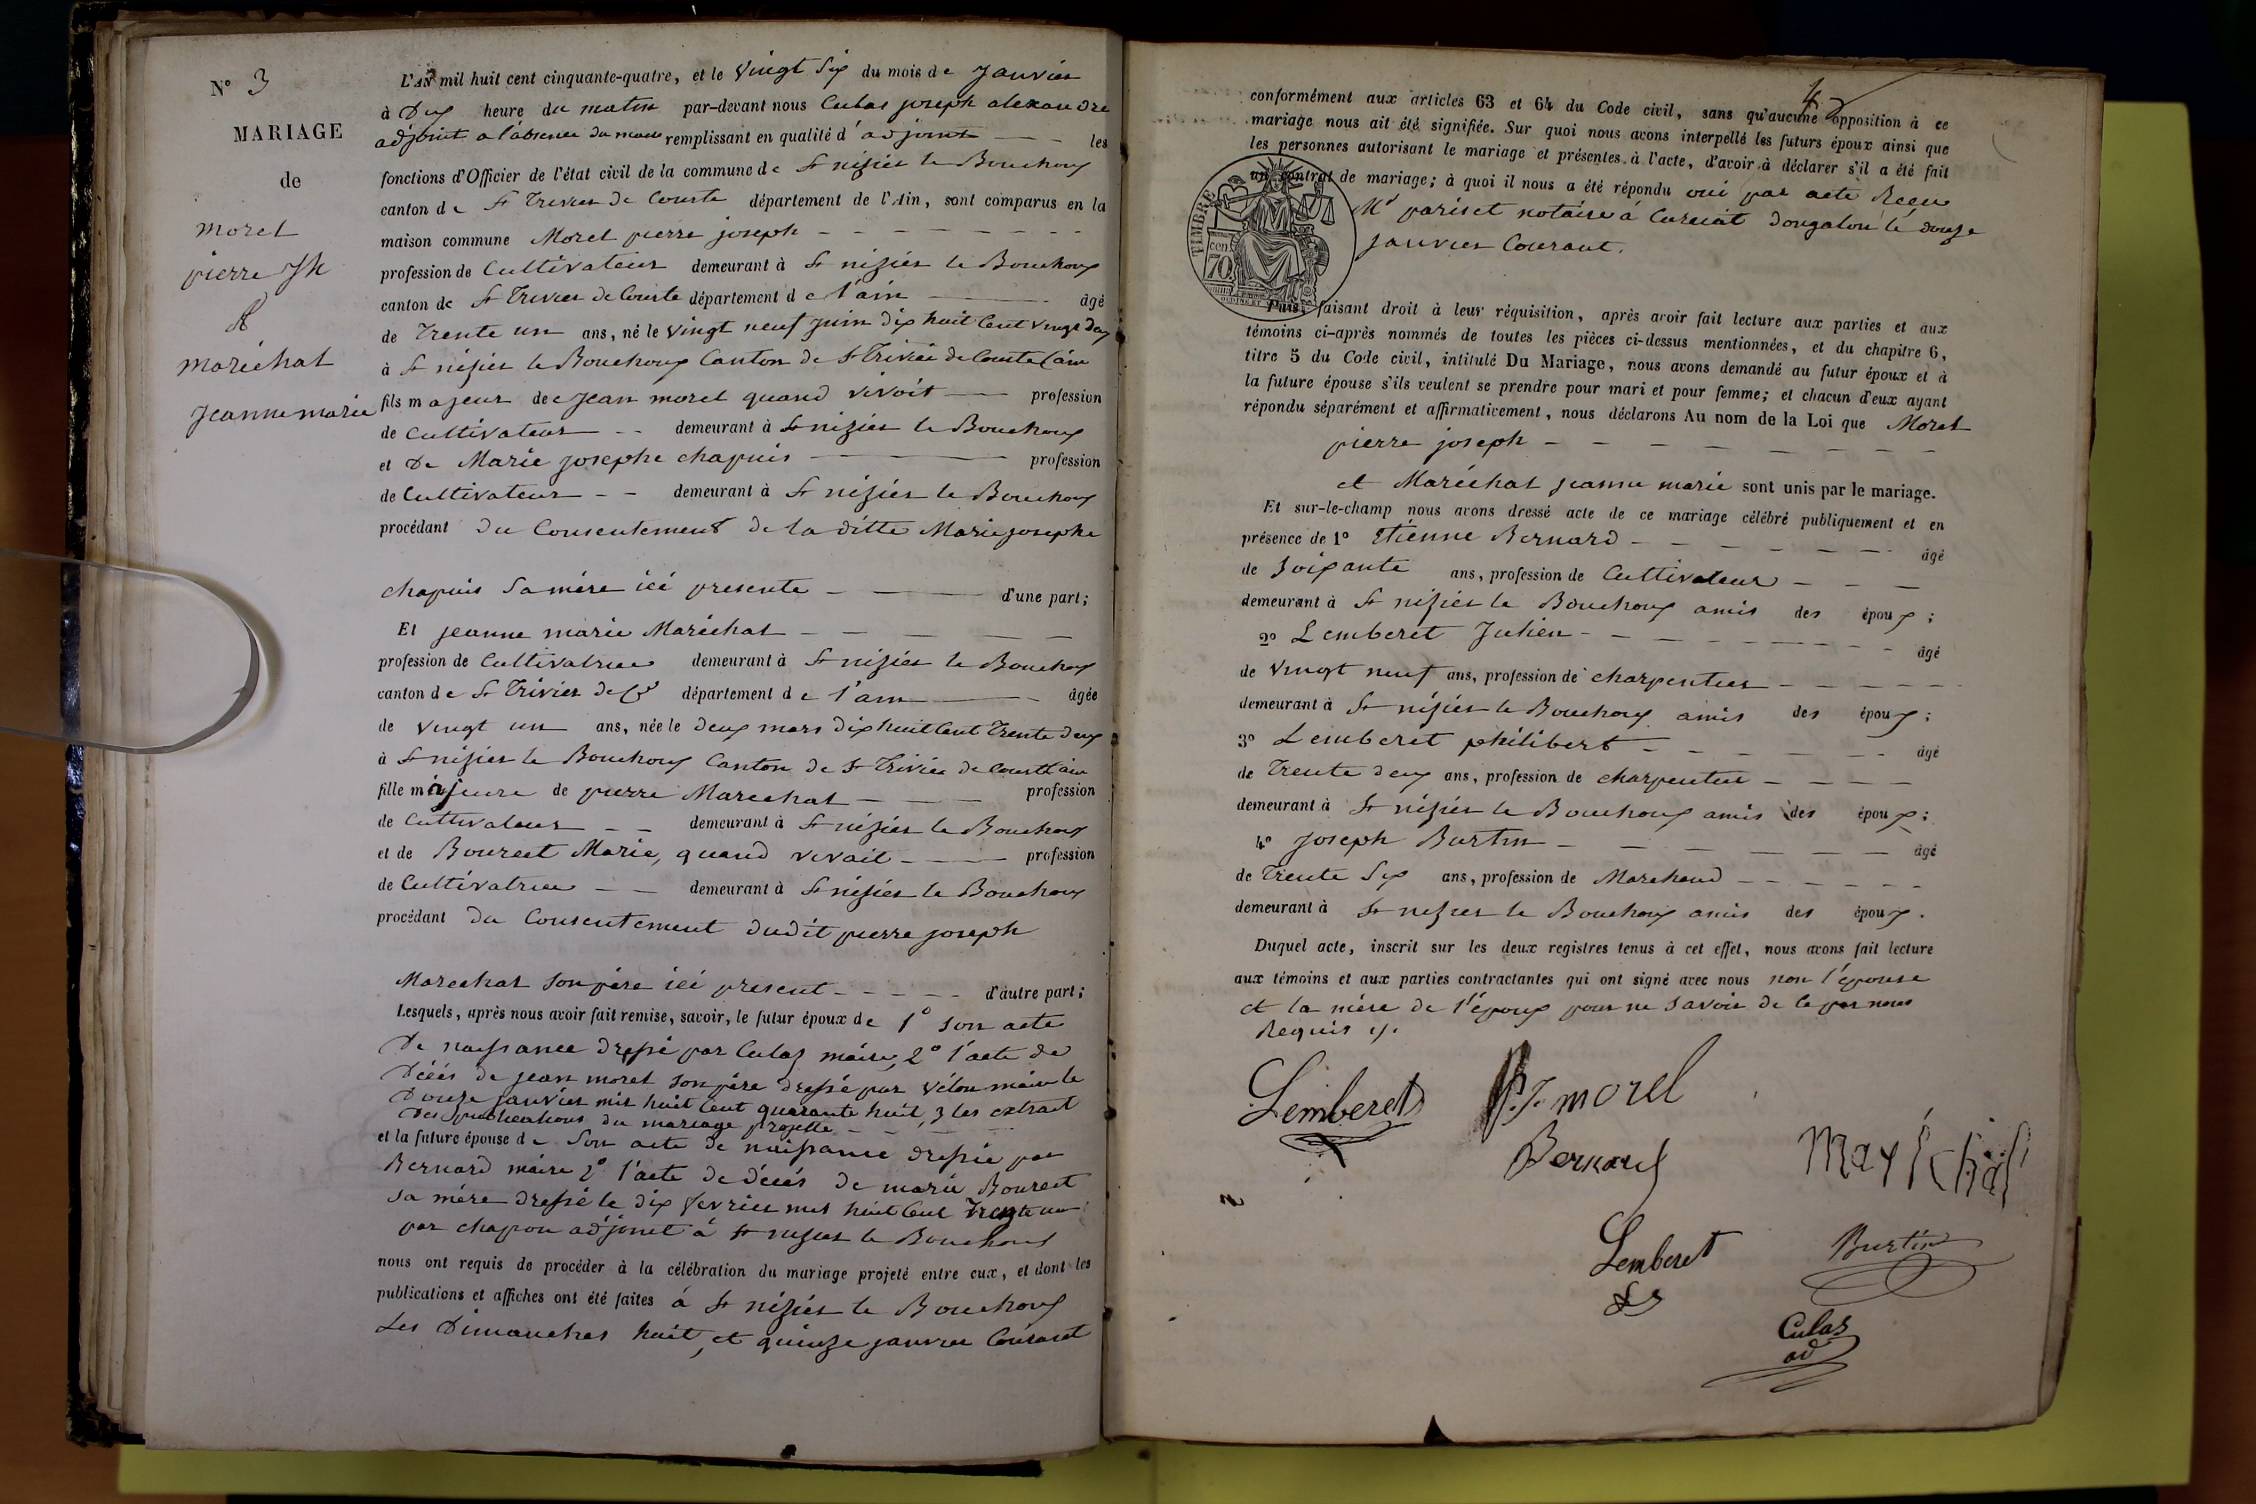 N° 3
MARIAGE
de
morel
pierre Jh
&
maréchal
Jeanne marie
L'AN mil huit cent cinquante-quatre, et le vingt six du mois de janvier
à dix heure du matin par-devant nous Culas joseph alexandre
adjoint a l'absence du maire remplissant en qualité d'adjoint les
fonctions d'Officier de l'état civil de la commune de St nizier le Bouchoux
canton de St Trivier de Courte département de l'Ain, sont comparus en la
maison commune Morel pierre joseph
profession de Cultivateur demeurant à St nizier le Bouchoux
canton de St Trivier de Courte département de l'ain âgé
de Trente un ans, né le vingt neuf juin dix huit Cent vingt deux
à St nizier le Bouchoux Canton de St Trivier de Courte (ain
fils majeur de Jean morel quand vivoit profession
de Cultivateur demeurant à St nizier le Bouchoux
et de Marie josephe chapuis profession
de Cultivateur demeurant à St nizier le Bouchoux
procédant du Consentement de la ditte Marie josephe
chapuis sa mére icé presente d'une part;
Et jeanne marie Maréchal
profession de Cultivatrice demeurant à St nizier le Bouchoux
canton de St Trivier de Cte département de l'ain âgée
de vingt un ans, née le deux mars dix huit Cent Trente deux
à St nizier le Bouchoux Canton de St Trivier de Courte ain
fille majeure de pierre Marechal profession
de Cultivateur demeurant à St nizier le Bouchoux
et de Bourcet Marie, quand vivait profession
de Cultivatrice demeurant à St nizier le Bouchoux
procédant du Consentement dudit pierre joseph
Marechal son pére icé present d'autre part;
Lesquels, après nous avoir fait remise, savoir, le futur époux de 1° son acte
De naissance dressé par Culas maire, 2° l'acte de
décés de jean morel son pére dressé par vélon maire le
Douze janvier mil huit Cent quarante huit, 3 les extrait
des publications du mariage projetté
et la future épouse de son acte de naissance dressée par
Bernard maire 2° l'acte de décés de marie Bourcet
sa mére dressé le dix fevrier mil huit Cent
par chapon adjoint á St nizier le Bouchoux
nous ont requis de procéder à la célébration du mariage projeté entre eux, et dont les
publications et affiches ont été faites á St nizier le Bouchoux
Les Dimanches huit, et quinze janvier Courant
4
conformément aux articles 63 et 64 du Code civil, sans qu'aucune opposition à ce
mariage nous ait été signifiée. Sur quoi nous avons interpellé les futurs époux ainsi que
les personnes autorisant le mariage et présentes à l'acte, d'avoir à déclarer s'il a été fait
un contrat de mariage; à quoi il nous a été répondu oui par acte Reçu
Me pariset notaire á Curciat dongalon le douze
janvier Courant.
TIMBRE
cen.
70
Puis, faisant droit à leur réquisition, après avoir fait lecture aux parties et aux
témoins ci-après nommés de toutes les pièces ci-dessus mentionnées, et du chapitre 6,
titre 5 du Code civil, intitulé Du Mariage, nous avons demandé au futur époux et à
la future épouse s'ils veulent se prendre pour mari et pour femme; et chacun d'eux ayant
répondu séparément et affirmativement, nous déclarons Au nom de la Loi que Morel
pierre joseph
et Maréchal jeanne marie sont unis par le mariage.
Et sur-le-champ nous avons dressé acte de ce mariage célébré publiquement et en
présence de 1° Etiénne Bernard âgé
de soixante ans, profession de Cultivateur
demeurant à St nizier le Bouchoux amis des époux;
2° Lemberet Julien âgé
de vingt neuf ans, profession de charpentier
demeurant à St nizier le Bouchoux amis des époux;
3° Lemberet philibert âgé
de Trente deux ans, profession de charpentier
demeurant à St nizier le Bouchoux amis des époux;
4° joseph Burtin âgé
de Trente six ans, profession de Marchand
demeurant à St nizier le Bouchoux amis des époux.
Duquel acte, inscrit sur les deux registres tenus à cet effet, nous avons fait lecture
aux témoins et aux parties contractantes qui ont signé avec nous non l'épouse
et la mére de l'époux pour ne savoir de ce par nous
Requis
Lemberet P.J. morel
Bernard Maréchal
Lemberet Burtin
Culas
ad